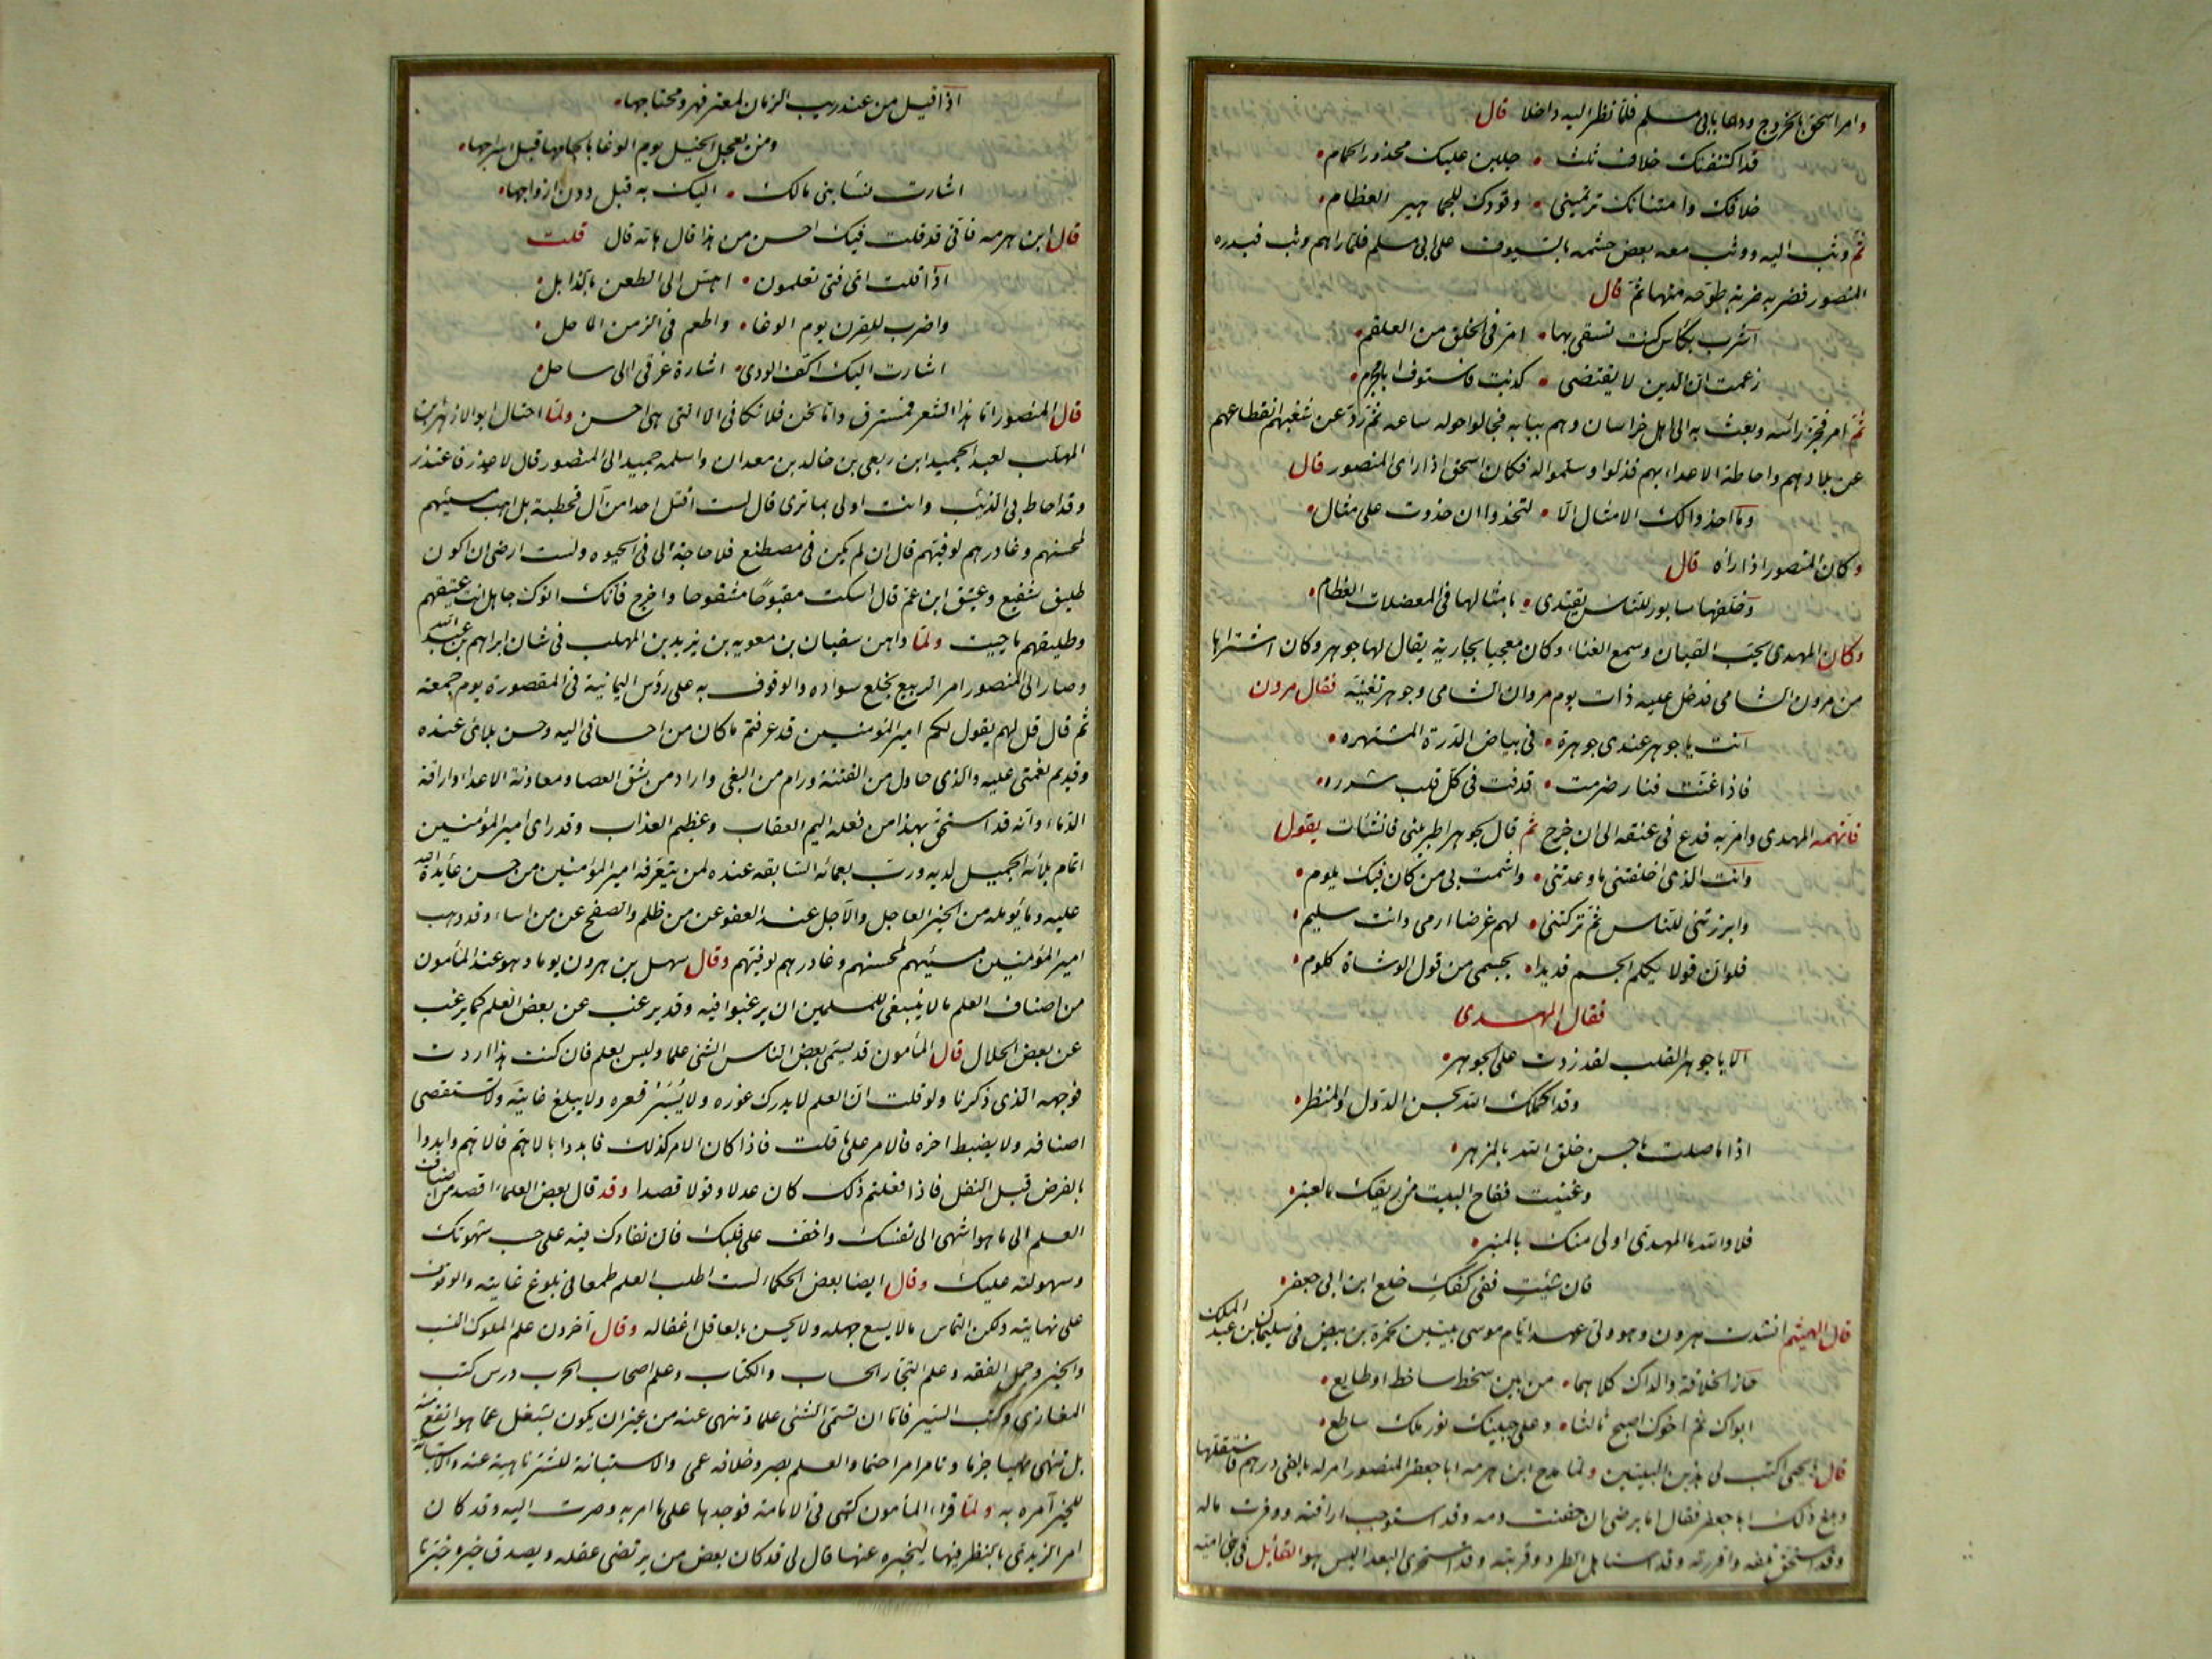 وامر اسحق بالخروج ودعا بابى مسلم فلما نظر اليه داخلا قال
قد اكتنفتك خلاف ثلث • جلبن عليك محذور الحمام •
خلافك وامتنانك ترتمينى • وقودك للجماهير العظام •
ثم وثب اليه ووثب معه بعض حشمه بالسيوف على ابى مسلم فلما راهم وثب فبدره
المنصور فضربه ضربة طوحه منها ثم قال
اشرب بكأس كنت تسقى بها • امر فى الحلق من العلقم •
زعمت ان الدين لا يقتضى • كذبت فاستوف ابا مجرم •
ثم امر فحز رأسه وبعث به الى اهل خراسان وهم ببابه فجالوا حوله ساعه ثم ردّ عن شغبهم انقطاعهم
عن بلادهم واحاطة الاعداء بهم فذلوا وسلموا له فكان اسحق اذا راى المنصور قال
وما احذو لك الامثال الا • لتحذو ان حذوت على مثال •
وكان المنصور اذا راه قال
وخلفها سابور للناس يقتدى • بامثالها فى المعضلات العظام •
وكان المهدى يحب القيان وسمع الغناء وكان معجبا بجارية يقال لها جوهر وكان اشتراها
من مرون الشامى فدخل عليه ذات يوم مروان الشامى وجوهر تغنيه فقال مرون
انت يا جوهر عندى جوهرة • فى بياض الدرة المشتهره •
فاذا غنت فنار ضرمت • قذفت فى كل قلب شرره •
فاتهمه المهدى وامر به فدع فى عنقه الى ان خرج ثم قال لجوهر اطربينى فانشأت يقول
وانت الذى اخلفتنى ما وعدتنى • واشمت بى من كان فيك يلوم •
وابرزتنى للناس ثم تركتنى • لهم غرضا ارمى وانت سليم •
فلو ان قولا يكلم الجسم قد بدا • بجسمى من قول الوشاة كلوم •
فقال المهدى
الا يا جوهر القلب لقد زدت على الجوهر •
وقد اكملك الله بحسن الدل والمنظر •
اذا ما صلت يا حسن خلق الله بالمزهر •
وغنيت ففاح البيت من ريقك بالعنبر •
فلا والله ما المهدى اولى منك بالمنبر •
فان شئتِ ففى كفكِ خلع ابن ابى جعفر •
قال الهيثم انشدت هرون وهو ولى عهد ايام موسى بيتين لحمزة بن بيض فى سليمان بن عبد الملك
حاز الخلافة والداك كلاهما • من بين سخط ساخط او طايع •
ابواك ثم اخوك اصبح ثالثا • وعلى جبينك نور ملك ساطع •
قال يا يحيى اكتب لى هذين البيتين ولما مدح ابن هرمه ابا جعفر المنصور امر له بالفى درهم فاستقلها
وبلغ ذلك ابا جعفر فقال اما يرضى ان حقنت دمه وقد استوجب اراقته ووفرت ماله
وقد استحق تلفه واقررته وقد استاهل الطرد وقربته وقد استحرى البعد اليس هو القائل فى بنى امية
اذا قيل من عند ريب الزمان لمعتر فهر ومحتاجها •
ومن يعجل الخيل يوم الوغا بالجامها قبل اسراجها •
اشارت نسا بنى مالك • اليك به قبل ازواجها •
قال ابن هرمه فانى قد قلت فيك احسن من هذا قال هاته قال قلت
اذا قلت اى فتى تعلمون • اهش الى الطعن بالذابل •
واضرب للقرن يوم الوغا • واطعم فى الزمن الماحل •
اشارت اليك اكف الورى • اشارة غرقى الى ساحل •
قال المنصور اما هذا الشعر فمسترق واما نحن فلا نكافى الا التى هى احسن ولما احتال ابو الازهر
المهلب لعبد الحميد ابن ربعى بن خالد بن معدان واسلمه حميد الى المنصور قال لا عذر فاعتذر
وقد احاط بى الذنب وانت اولى بما ترى قال لست اقتل احدا من آل قحطبة بل اهب مسيئهم
لمحسنهم وغادرهم لوفيهم قال ان لم يكن فى مصطنع فلا حاجة لى فى الحيوه ولست ارضى ان اكون
طليق شفيع وعتيق ابن عم قال اسكت مقبوحًا مشقوحا واخرج فانك انوك جاهل انت عتيقهم
وطليقهم ما حييت ولما داهن سفيان بن معويه بن يزيد بن المهلب فى شان ابراهيم بن عبد الله
وصار الى المنصور امر الربيع بخلع سواده والوقوف به على رؤس اليمانية فى المقصورة يوم جمعه
ثم قال قل لهم يقول لكم امير المؤمنين قد عرفتم ما كان من احسانى اليه وحسن بلائى عنده
وقديم نعمتى عليه والذى حاول من الفتنة ورام من البغى واراد من شق العصا ومعاونة الاعدا واراقة
الدماء وانه قد استحق بهذا من فعله اليم العقاب وعظيم العذاب وقد راى امير المؤمنين
اتمام بلائه الجميل لديه وربّ نعمائه السابقه عنده لمن يتعرفه امير المؤمنين من حسن عائدة الله
عليه وما يؤمله من الخير العاجل والآجل عند العفو عن من ظلم والصفح عن من اساء وقد وهب
امير المؤمنين مسيئهم لمحسنهم وغادرهم لوفيهم وقال سهل بن هرون يوما وهو عند المأمون
من اصناف العلم ما لا ينبغى للمسلمين ان يرغبوا فيه وقد يرغب عن بعض العلم كما يرغب
عن بعض الحلال قال المأمون قد يسمى بعض الناس الشئ علما وليس بعلم فان كنت هذا اردت
فوجهه الذى ذكرنا ولو قلت ان العلم لا يدرك غوره ولا يُسْبَر قعره ولا يبلغ غايته ولا تستقصى
اصنافه ولا يضبط اخره فالامر على ما قلت فاذا كان الامر كذلك فابدوا بالاهم فالاهم وابدوا
بالفرض قبل النفل فاذا فعلتم ذلك كان عدلا وقولا قصدا وقد قال بعض العلماء اقصد من اصناف
العلم الى ما هو اشهى الى نفسك واخف على قلبك فان نفاذك فيه على حسب شهوتك
وسهولته عليك وقال ايضا بعض الحكماء لست اطلب العلم طمعا فى بلوغ غايته والوقوف
على نهايته ولكن التماس ما لا يسع جهله ولا يحسن بالعاقل اغفاله وقال آخرون علم الملوك النسب
والخبر وجمل الفقه وعلم التجار الحساب والكتاب وعلم اصحاب الحرب درس كتب
المغازى وكتب السير فاما ان تسمى الشئ علما وتنهى عنه من غير ان يكون يشغل عما هو انفع منه
بل تنهى نهيا جزما وتامر امرا حتما والعلم بصر وخلافه عمى والاستبانة للشر ناهية عنه والاستبانة
للخير آمره به ولما قراء المأمون كتبى فى الامامة فوجدها على ما امر به وصرت اليه وقد كان
امر اليزيدى بالنظر فيها ليخبره عنها قال لى قد كان بعض من يرتضى عقله ويصدق خبره خبّرنا